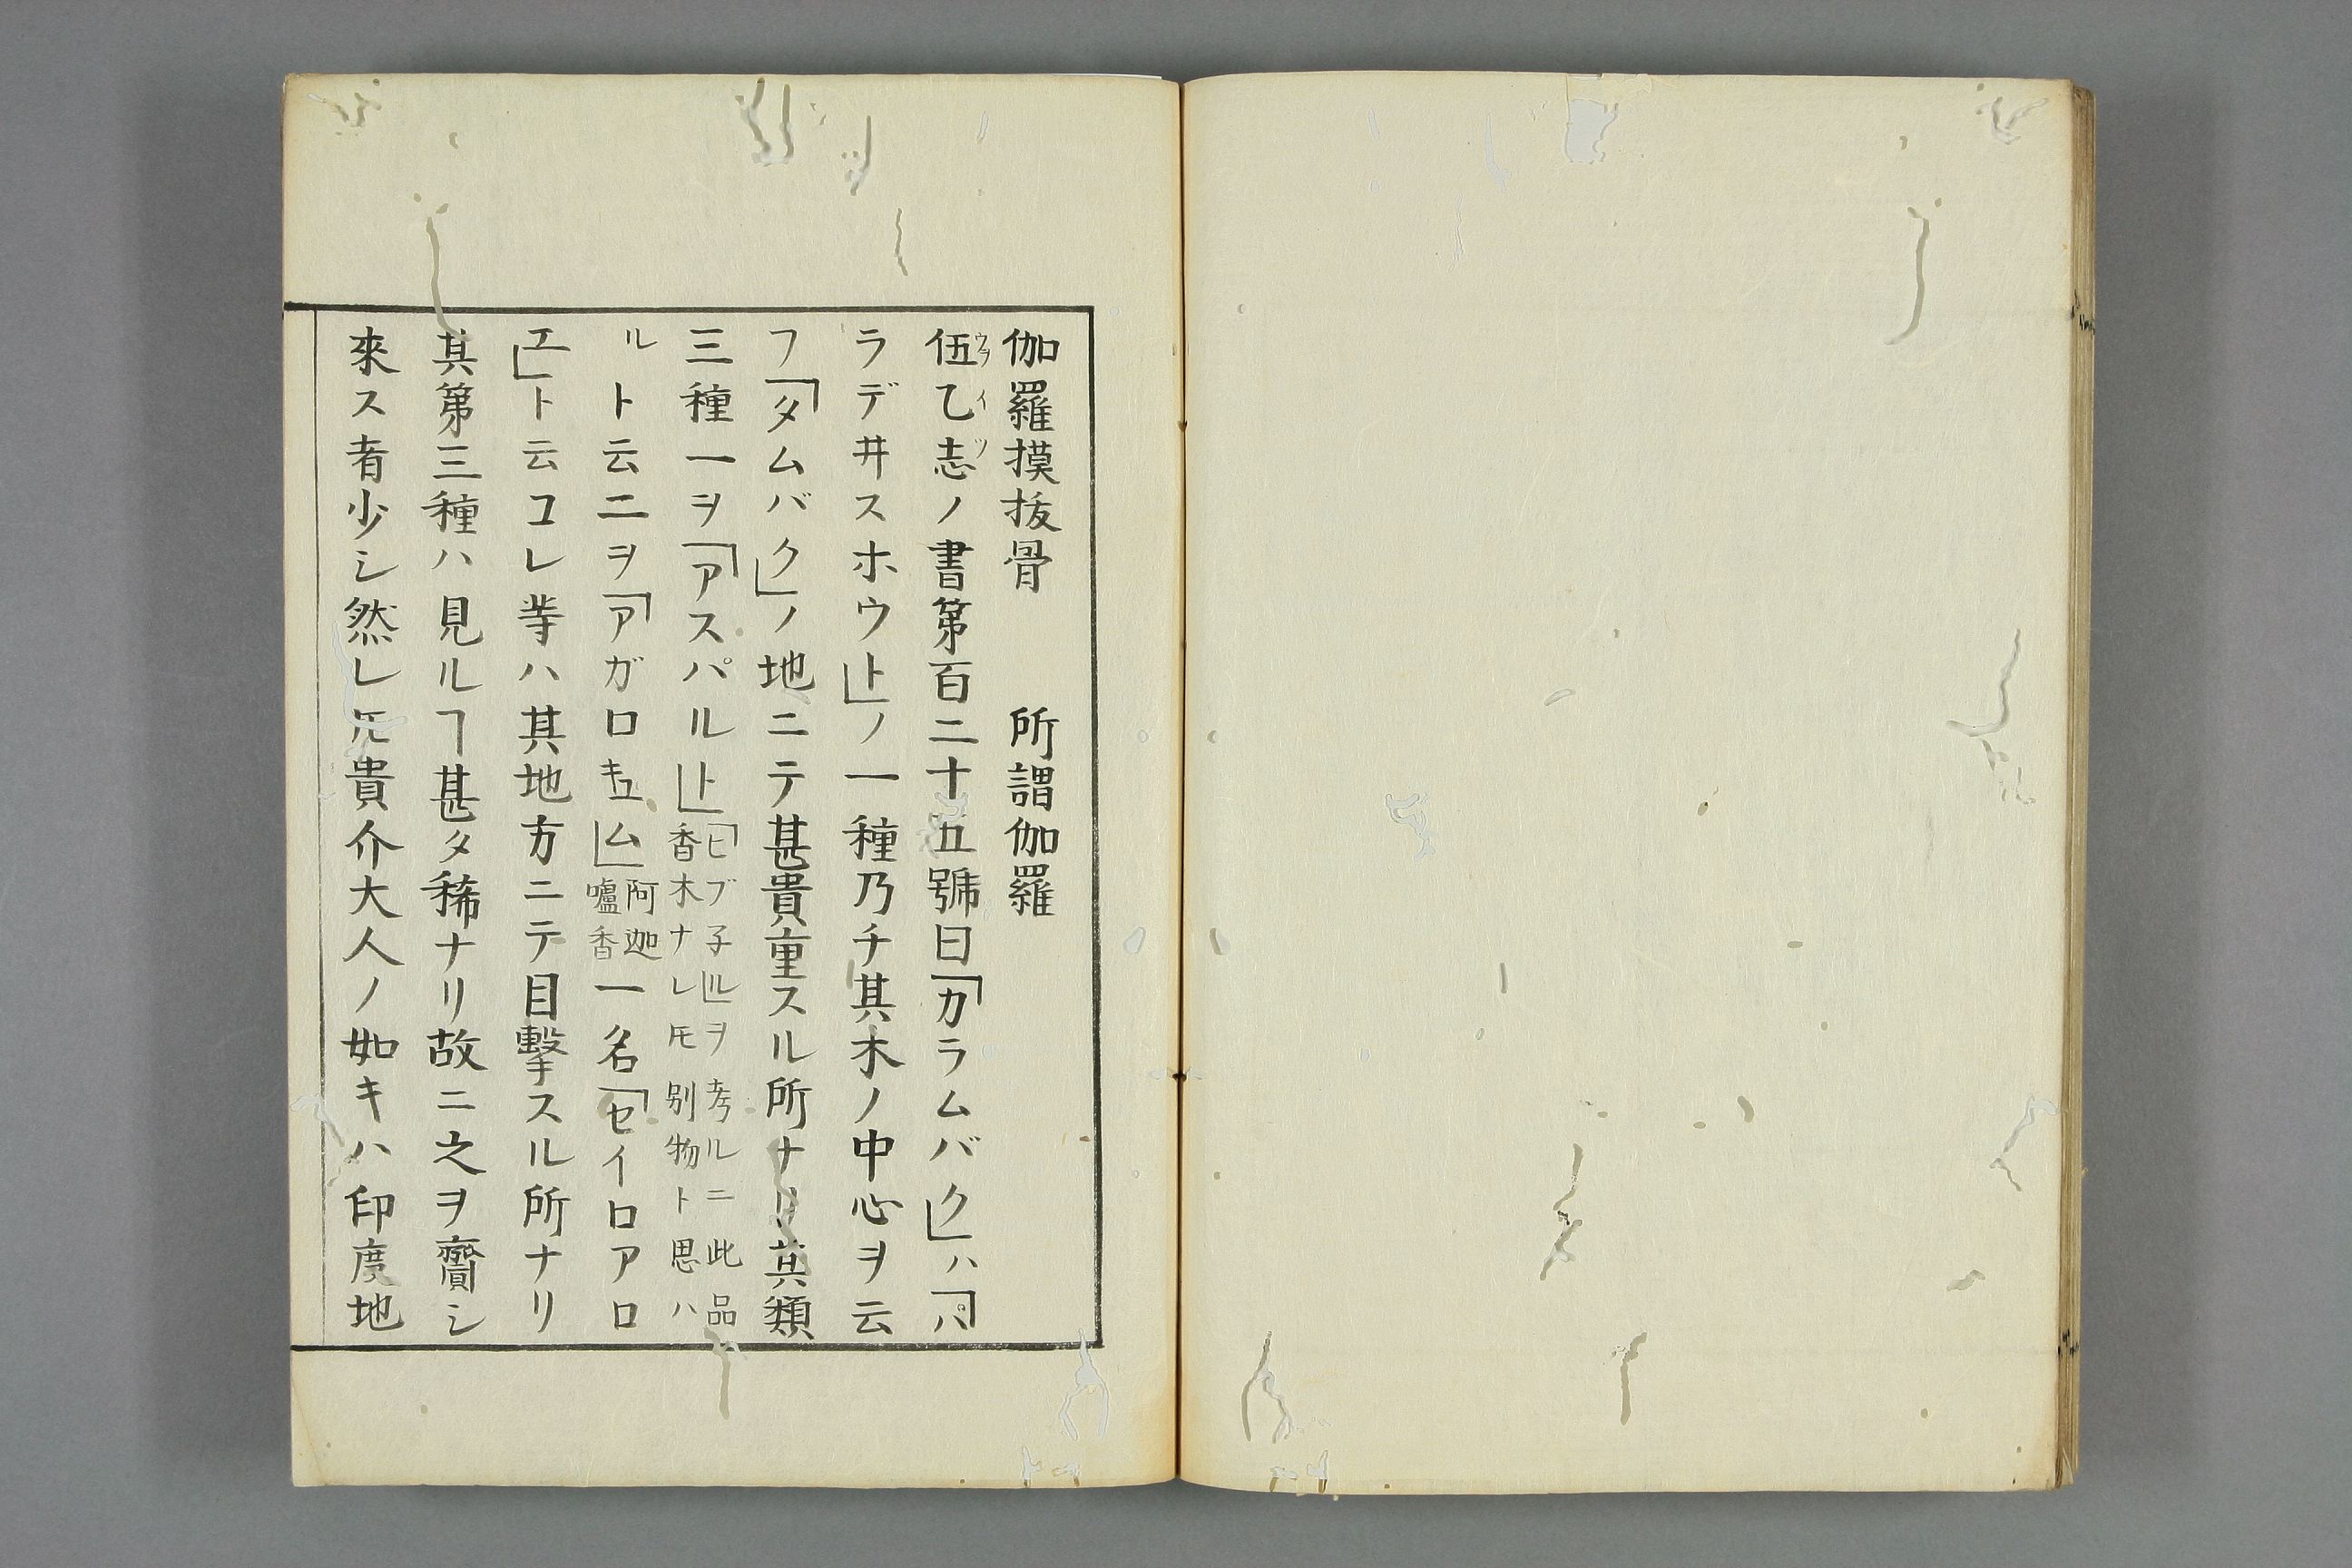 伽羅摸抜骨　　所謂伽羅
伍乙志ノ書第百二十五號曰「カラムバク」ハ「パ
ウヲイツ
ラデ井スホウト」ノ一種乃チ其木ノ中心ヲ云
フ「タムバク」ノ地ニテ甚貴重スル所ナリ其類
三種一ヲ「アスパルト」
「ヒブ子ル」ヲ考ルニ此品
香木ナレ𪜈別物ト思ハ
ル
ト云二ヲ「アガロキュム」
阿迦
嚧香
一名「セイロアロ
エ」ト云コレ䓁ハ其地方ニテ目擊スル所ナリ
其第三種ハ見ルヿ甚タ稀ナリ故ニ之ヲ齎シ
來ス者少シ然レ𪜈貴介大人ノ如キハ印度地